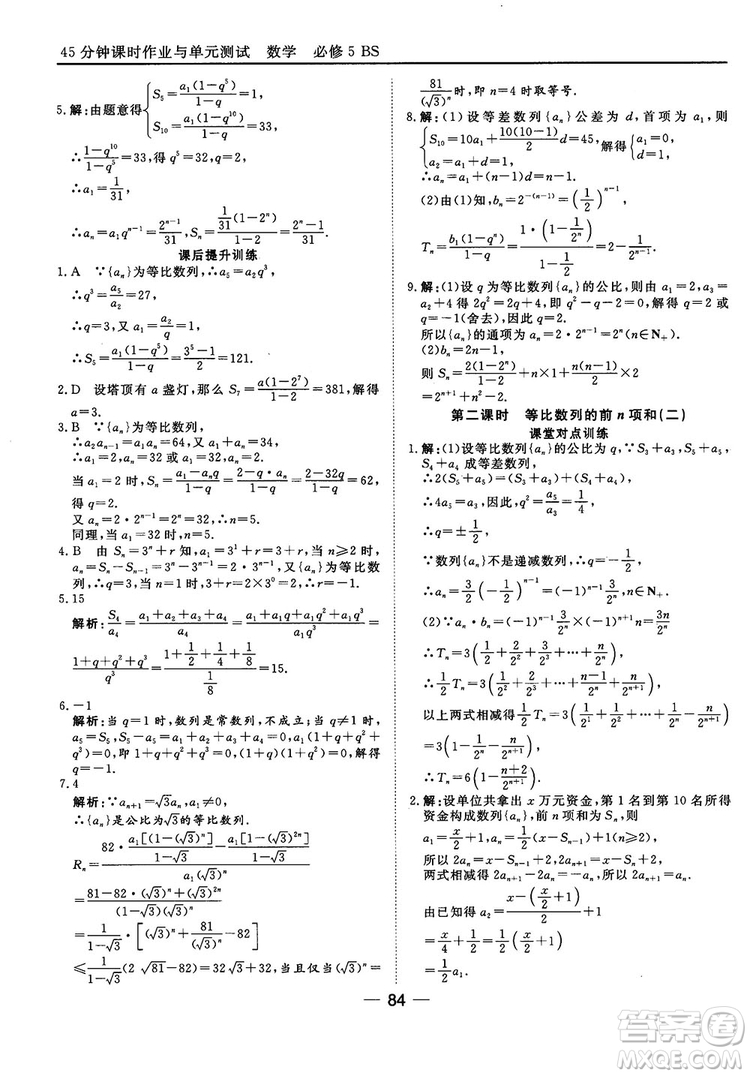 45分钟课时作业与单元测试 数学 必修5 BS
5.解:由题意得{S₅=a₁(1-q⁵)/(1-q)=1,
S₁₀=a₁(1-q¹⁰)/(1-q)=33,
∴(1-q¹⁰)/(1-q⁵)=33,∴q=2,
∴a₁=1/31,
∴aₙ=a₁qⁿ⁻¹=2ⁿ⁻¹/31,Sₙ=(1/31)(1-2ⁿ)/(1-2)=(2ⁿ-1)/31.
课后提升训练
1.A ∵{aₙ}为等比数列,∴a₅=a₂q³,
∴q³=a₅/a₂=27,
∴q=3,又a₁=a₂/q=1,
∴S₅=a₁(1-q⁵)/(1-q)=(3⁵-1)/2=121.
2.D 设塔顶有a盏灯,那么S₇=a(1-2⁷)/(1-2)=381,解得
a=3.
3.B ∵{aₙ}为等比数列,
∴a₂aₙ₋₁=a₁aₙ=64,又a₁+aₙ=34,
∴a₁=2,aₙ=32或a₁=32,aₙ=2.
当a₁=2时,Sₙ=(a₁-aₙq)/(1-q)=(2-32q)/(1-q)=62.得q
=2.
又∵aₙ=2·2ⁿ⁻¹=32,∴n=5.
同理,当a₁=32时,也有n=5.
4.B 由Sₙ=3ⁿ+r知,a₁=3¹+r=3+r,当n≥2时,
aₙ=Sₙ-Sₙ₋₁=3ⁿ-3ⁿ⁻¹=2·3ⁿ⁻¹,又{aₙ}为等比
数列,∴a₁=2,即3+r=2,∴r=-1.
5.15
解析:S₄/a₄=(a₁+a₂+a₃+a₄)/a₄=(a₁+a₁q+a₁q²+a₁q³)/(a₁q³)=
(1+q+q²+q³)/q³=(1+1/2+1/4+1/8)/(1/8)=15.
6.-1
解析:当q=1时,数列是常数列,不成立;当q≠1时,
a₅=S₅-S₄,又a₅=S₅,∴S₄=0,∴1+q+q²+
q³=0,即1+q+q²(1+q)=0,(1+q)(1+q²)=0,解得
q=-1.
7.4
解析:∵aₙ₊₁=√3aₙ,a₁≠0,
∴{aₙ}是公比为√3的等比数列.
Rₙ=(82·a₁[1-(√3)ⁿ]/(1-√3)-a₁[1-(√3)²ⁿ]/(1-√3))/(a₁(√3)ⁿ)
=(81-82·(√3)ⁿ+(√3)²ⁿ)/((1-√3)(√3)ⁿ)
=1/(1-√3)[(√3)ⁿ+81/(√3)ⁿ-82]
≤1/(1-√3)(2√81-82)=32,当且仅当(√3)ⁿ=
81/(√3)ⁿ时,即n=4时取等号.
8.解:(1)设等差数列{aₙ}公差为d,首项为a₁,则
{S₁₀=10a₁+10(10-1)/2 d=45,
a₂=a₁+d=1,解得{a₁=0,
d=1,
∴aₙ=a₁+(n-1)d=n-1.
(2)由(1)知,bₙ=2⁻⁽ⁿ⁻¹⁾=(1/2)ⁿ⁻¹,
Tₙ=b₁(1-qⁿ)/(1-q)=1·(1-1/2ⁿ)/(1-1/2)=2-1/2ⁿ⁻¹.
9.解:(1)设q为等比数列{aₙ}的公比,则由a₁=2,a₃=
a₂+4得2q²=2q+4,即q²-q-2=0,解得q=2或
q=-1(舍去),因此q=2.
所以{aₙ}的通项为aₙ=2·2ⁿ⁻¹=2ⁿ(n∈N₊)
(2)bₙ=1+2(n-1)=2n-1,
则Sₙ=2(1-2ⁿ)/(1-2)+n×1+n(n-1)/2×2
=2ⁿ⁺¹+n²-2.
第二课时 等比数列的前n项和(二)
课堂对点训练
1.解:(1)设等比数列{aₙ}的公比为q,∵S₃+a₃,S₅+a₅,
S₄+a₄成等差数列,
∴2(S₅+a₅)=(S₃+a₃)+(S₄+a₄),
∴4a₅=a₃,因此,q²=a₅/a₃=1/4,
∴q=±1/2,
∵数列{aₙ}不是递减数列,∴q=-1/2,
∴aₙ=3/2×(-1/2)ⁿ⁻¹=(-1)ⁿ⁻¹ 3/2ⁿ,n∈N₊.
(2)∵aₙ·bₙ=(-1)ⁿ⁻¹ 3/2ⁿ×(-1)ⁿ⁺¹n=3n/2ⁿ
∴Tₙ=3(1/2+2/2²+3/2³+…+n/2ⁿ),
∴1/2Tₙ=3(1/2²+2/2³+…+n/2ⁿ⁺¹),
以上两式相减得1/2Tₙ=3(1/2+1/2²+1/2³+…+1/2ⁿ
-n/2ⁿ⁺¹)=3(1-1/2ⁿ-n/2ⁿ⁺¹),
∴Tₙ=6(1-1/2ⁿ-n/2ⁿ⁺¹).
2.解:设单位共拿出x万元资金,第1名到第10名所得
资金构成数列{aₙ},前n项和为Sₙ,则
a₁=x/2+1,aₙ=(x-Sₙ₋₁)/2+1(n≥2),
所以2aₙ=x-Sₙ₋₁+2,2aₙ₊₁=x-Sₙ+2(n≥2),
两式相减得2aₙ₊₁-2aₙ=-aₙ,所以aₙ₊₁=1/2aₙ,
由已知得a₂=(x-(x/2+1))/2+1=(x/2+1)/2
=1/2a₁.
84
答案圈
MXQE.COM